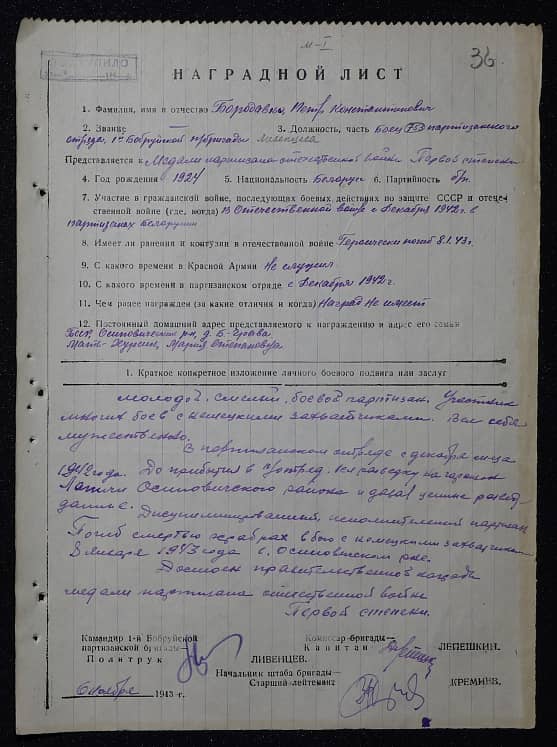 м-I
36
НАГРАДНОЙ ЛИСТ
1. Фамилия, имя и отчество Бородавко, Петр Константинович
2. Звание — 3. Должность, часть Боец 753 партизанского
отряда, 1ой Бобруйской п/бригады Ливенцева
Представляется к Медали партизана отечественной войны Первой степени
4. Год рождения 1924 5. Национальность Беларус 6. Партийность б/п.
7. Участие в гражданской войне, последующих боевых действиях по защите СССР и отече-
ственной войне (где, когда) В Отечественной войне с декабря 1942 г. в
партизанах Белоруссии
8. Имеет ли ранения и контузии в отечественной войне Героически погиб 8.1.43г.
9. С какого времени в Красной Армии Не служил
10. С какого времени в партизанском отряде с декабря 1942г.
11. Чем ранее награжден (за какие отличия и когда) Наград не имеет
12. Постоянный домашний адрес представляемого к награждению и адрес его семьи
БССР, Осиповичский р-н, д. Б-
Мать - Мария Степановна
1. Краткое конкретное изложение личного боевого подвига или заслуг
Молодой, смелый, боевой партизан. Участник
многих боев с немецкими захватчиками. Вел себя
мужественно.
В партизанском отряде с декабря м-ца
1942 года. До прибытия в отряд вел разведку на гарнизон
Лапичи Осиповичского района и давал ценные развед.
данные. Дисциплинированный, исполнительный партизан
Погиб смертью храбрых в бою с немецкими захватчиками
8 января 1943 года в Осиповичском р-не.
Достоен правительственной награды
медали партизана отечественной войны
Первой степени.
Командир 1-й Бобруйской
партизанской бригады—
Политрук ЛИВЕНЦЕВ.
Комиссар бригады—
Капитан ЛЕПЕШКИН.
Начальник штаба бригады—
Старший лейтенант КРЕМНЕВ.
6 ноября 1943 г.